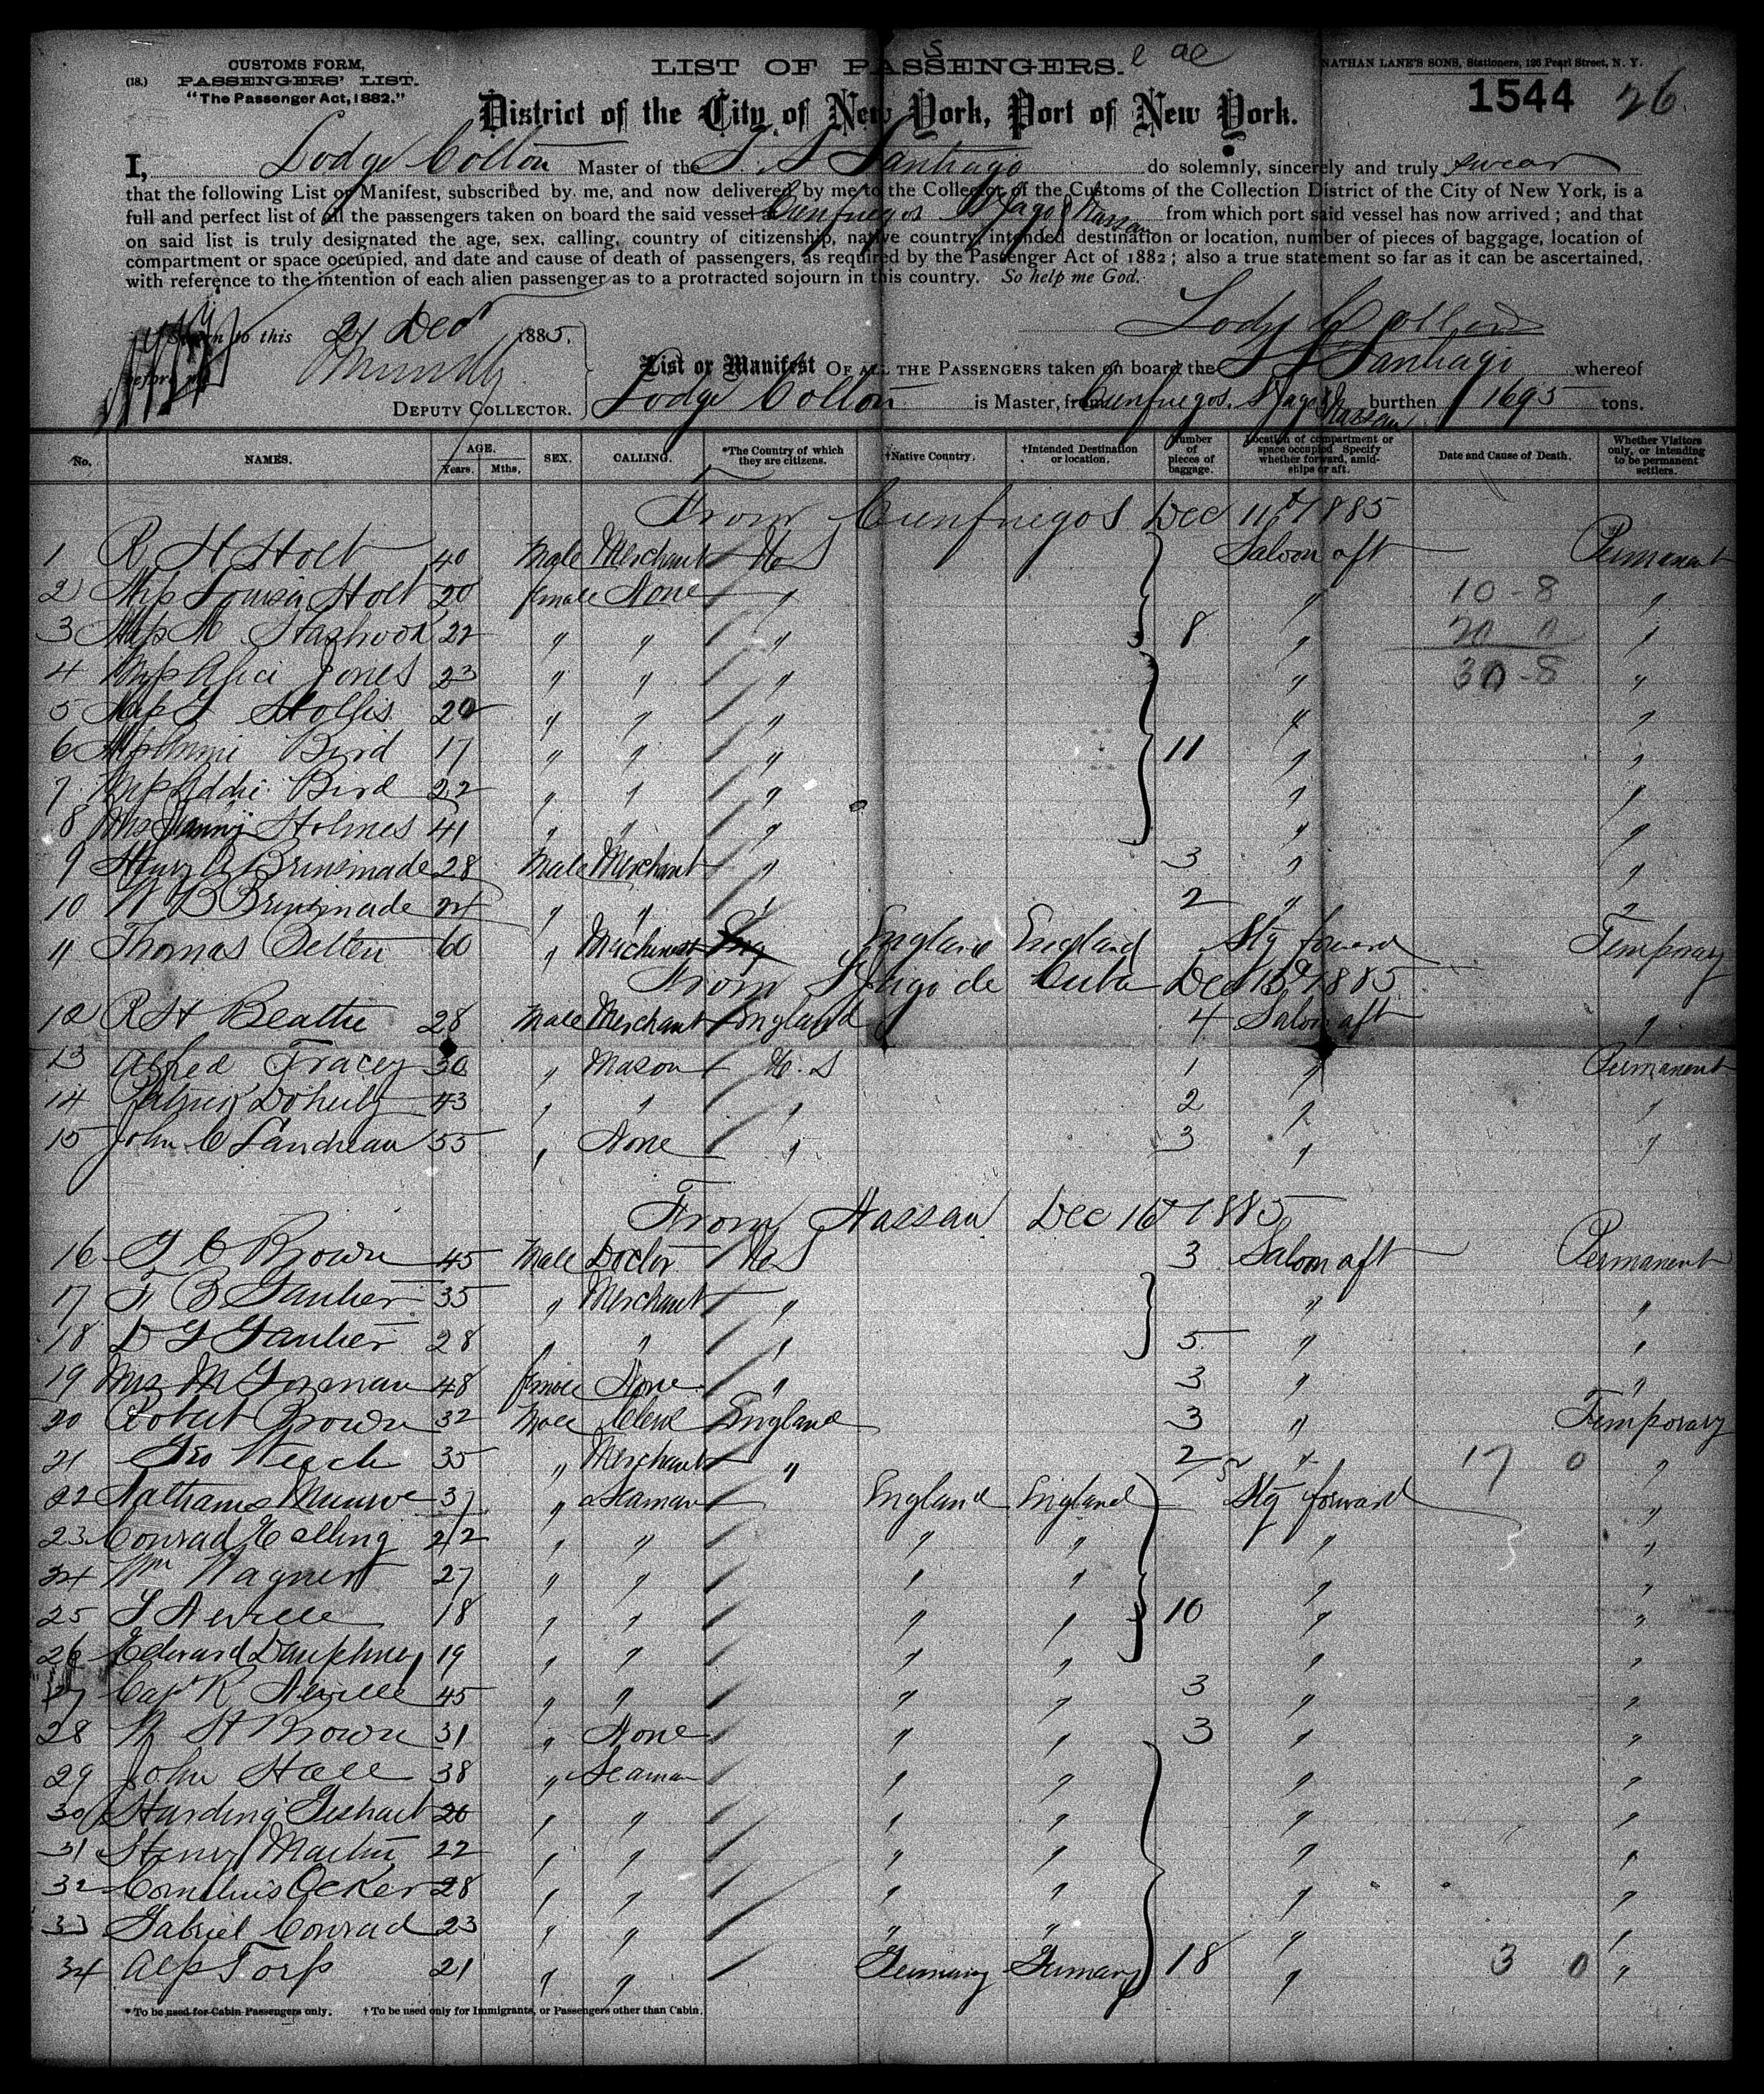 CUSTOMS FORM,
(18.) PASSENGERS' LIST.
"The Passenger Act, 1882."
LIST OF PASSENGERS.
NATHAN LANE'S SONS, Stationers, 126 Pearl Street, N. Y.
1544 26
District of the City of New York, Port of New York.
I, Lodge Colton Master of the S. S Santiago do solemnly, sincerely and truly swear
that the following List or Manifest, subscribed by me, and now delivered by me to the Collector of the Customs of the Collection District of the City of New York, is a
full and perfect list of all the passengers taken on board the said vessel Cienfuegos St Jago & Nassau from which port said vessel has now arrived; and that
on said list is truly designated the age, sex, calling, country of citizenship, native country, intended destination or location, number of pieces of baggage, location of
compartment or space occupied, and date and cause of death of passengers, as required by the Passenger Act of 1882; also a true statement so far as it can be ascertained,
with reference to the intention of each alien passenger as to a protracted sojourn in this country. So help me God.
Lodge Colton
Sworn to this 21 Dec 1885,
before me
DEPUTY COLLECTOR.
List or Manifest OF ALL THE PASSENGERS taken on board the S S Santiago whereof
Lodge Colton is Master, from Cienfuegos, St Jago & Nassau burthen 1695 tons.
No. NAMES. AGE. Years. Mths. SEX. CALLING. *The Country of which they are citizens. †Native Country. †Intended Destination or location. Number of pieces of baggage. Location of compartment or space occupied Specify whether forward, amidships or aft. Date and Cause of Death. Whether Visitors only, or intending to be permanent settlers.
From Cienfuegos Dec 11th 1885
1 R H Holt 40 Male Merchant U S Saloon aft Permanent
2 Miss Louisa Holt 20 female None " " 10-8 "
3 Miss M 22 " " " 8 " 20 0 "
4 Miss Alice Jones 23 " " " " 30-8 "
5 Miss Hollis 20 " " " " "
6 Miss Annie Bird 17 " " " 11 " "
7 Miss Addie Bird 22 " " " " "
8 Mrs Holmes 41 " " " " "
9 Henry A Brinsmade 28 Male Merchant " 3 " "
10 W B Brinsmade 24 " " " 2 " "
11 Thomas 60 " Machinest Eng England England Stg forward Temporary
From St Jago de Cuba Dec 13th 1885
12 R H Beattie 28 Male Merchant England 4 Saloon aft "
13 Alfred Tracey 30 " Mason U. S 1 " Permanent
14 Patrick Doherty 43 " " " 2 " "
15 John C Landreau 55 " None " 3 " "
From Nassau Dec 16th 1885
16 Brown 45 Male Doctor U S 3 Saloon aft Permanent
17 F B 35 " Merchant " " "
18 28 " " " 5 " "
19 Mrs M Gorman 48 female None " 3 " "
20 Robert Brown 32 Male Clerk England 3 " Temporary
21 Geo Weech 35 " Merchant " 2 " 17 0 "
22 Munroe 37 " Seaman England England Stg forward "
23 Conrad 22 " " " " " "
24 Wm Wagner 27 " " " " " "
25 Neville 18 " " " " 10 " "
26 Edward Dauphney 19 " " " " " "
27 Capt R Neville 45 " " " " 3 " "
28 H Brown 31 " None " " 3 " "
29 John Hall 38 " Seaman " " " "
30 Harding 20 " " " " " "
31 Henry Martin 22 " " " " " "
32 Cornelius Ocker 28 " " " " " "
33 Gabriel Conrad 23 " " " " " "
34 Torp 21 " " Germany Germany 18 " 3 0 "
* To be used for Cabin Passengers only. † To be used only for Immigrants, or Passengers other than Cabin.